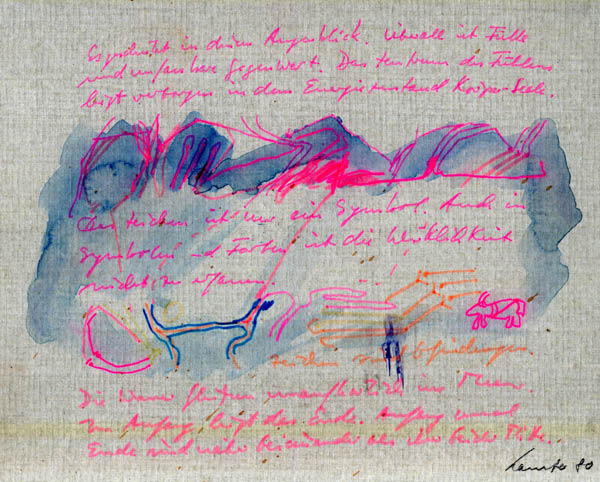 Es geschieht in diesem Augenblick. Überall ist Fülle
und unfassbare Gegenwart. Das des Fühlens
liegt verborgen in dem Energiezustand Körper-Seele.
Das Zeichen ist nur ein Symbol. Auch in
Symbolen und Farben ist die Wirklichkeit
nicht zu
zeichen
Die fließen unaufhörlich ins Meer.
Im Anfang liegt das Ende. Anfang und
Ende sind näher beieinander als ihre beider Mitte..
80